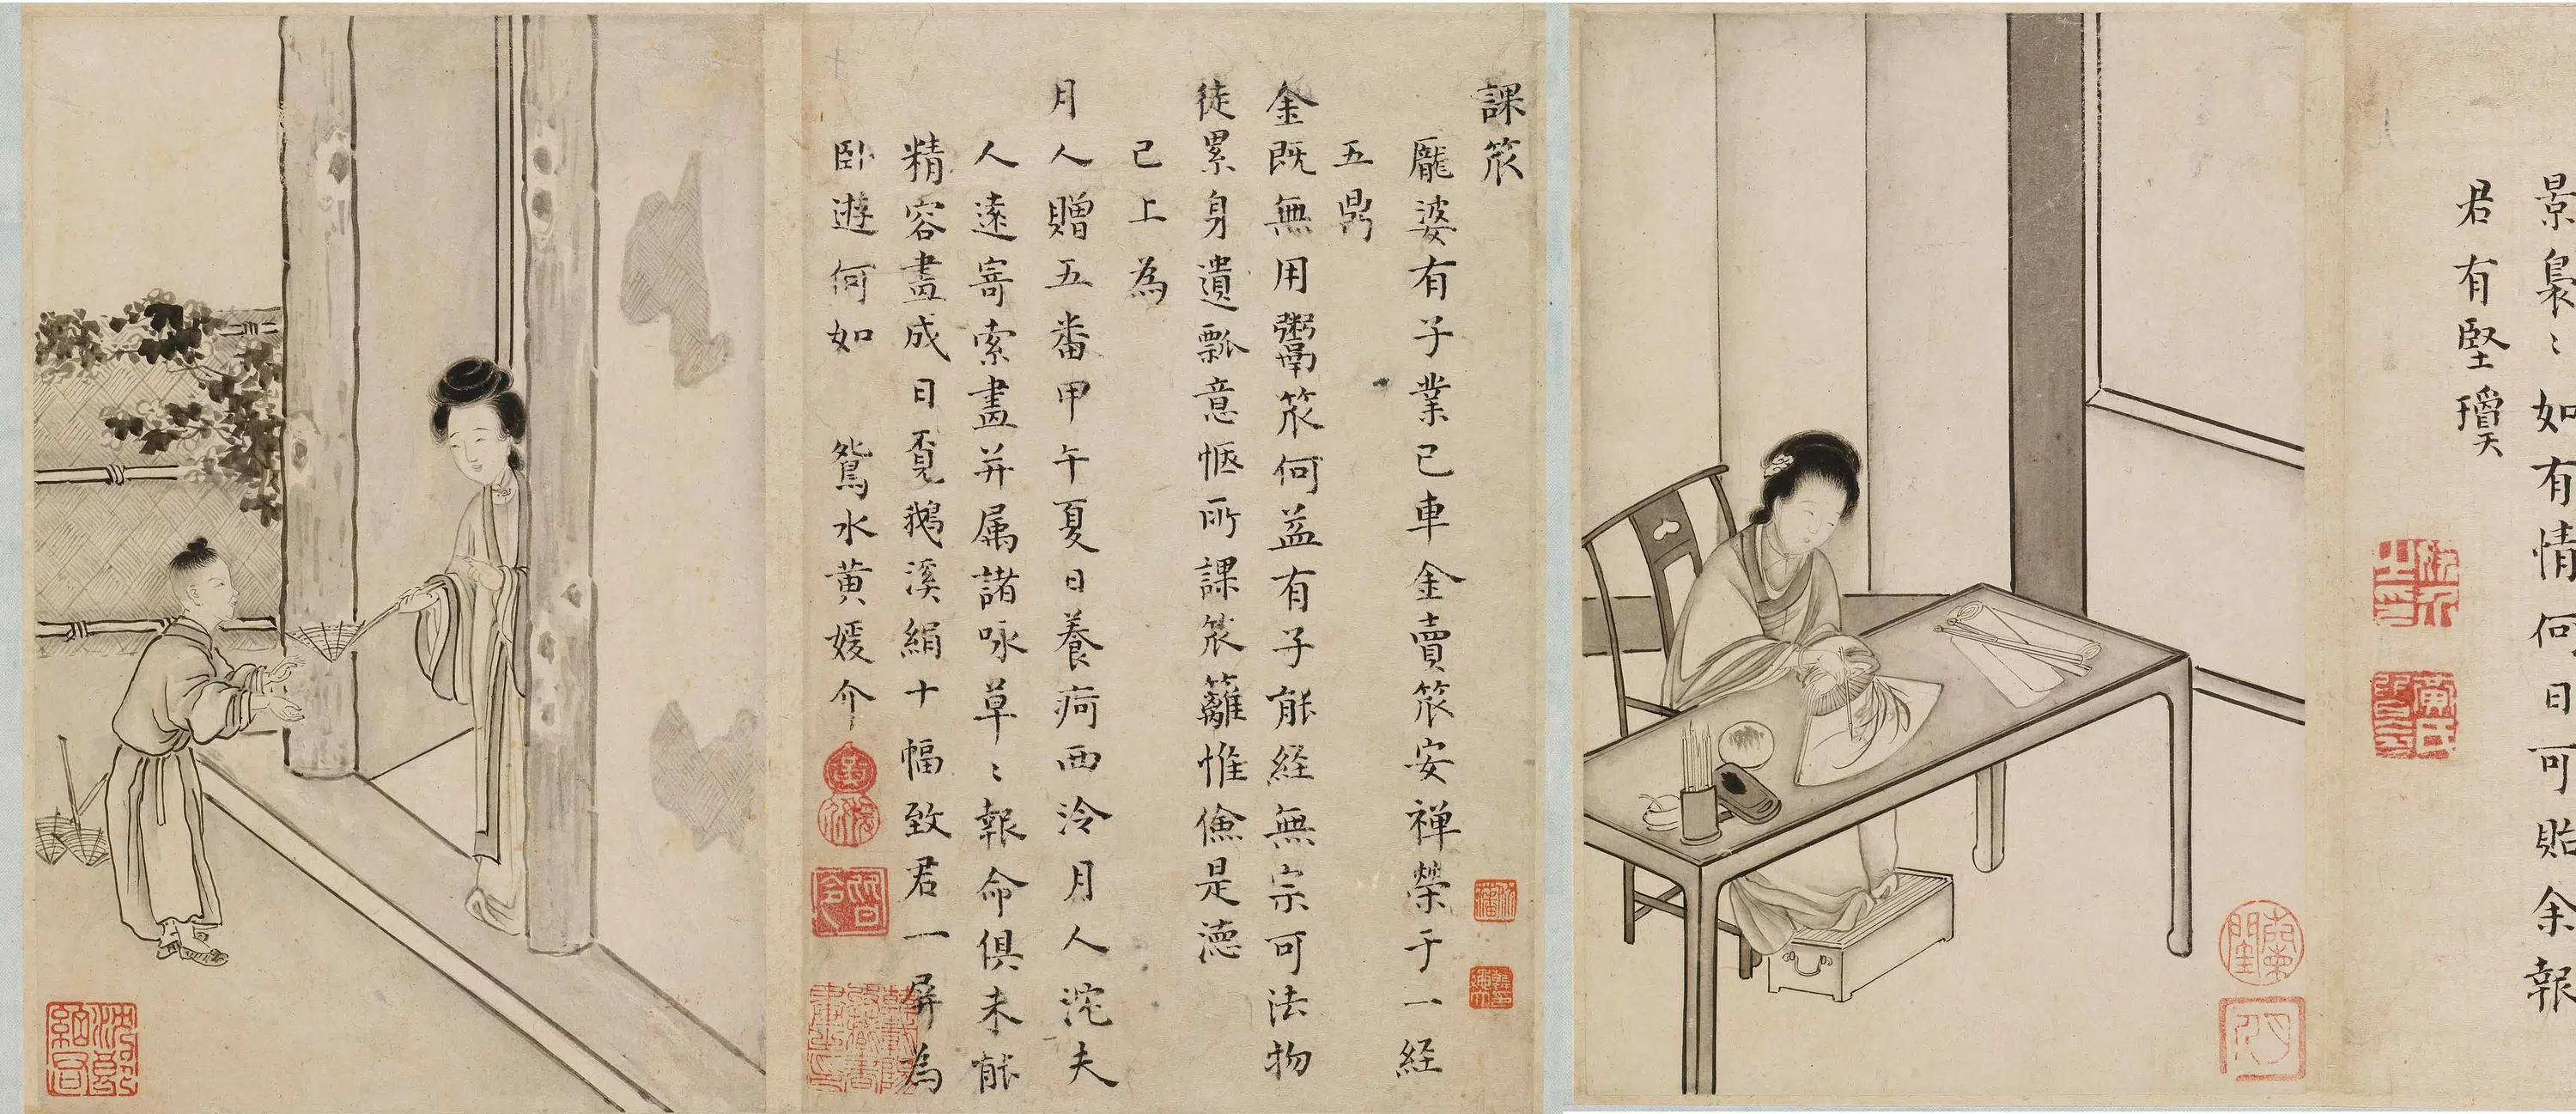 景裊〻如有情何日可貽余報
君有堅瓊
課笊
龐婆有子業已車金賣笊安禅榮于一経
五鼎
金既無用鬻笊何益有子能経無宗可法物
徒累身遺瓢意惬所課笊籬惟儉是德
已上為
月人贈五番甲午夏日養疴西泠月人沱夫
人遠寄索畫并属諸咏草〻報命俱未能
精容畫成日覔鵝溪絹十幅致君一屏為
卧遊何如 鴛水黄媛介